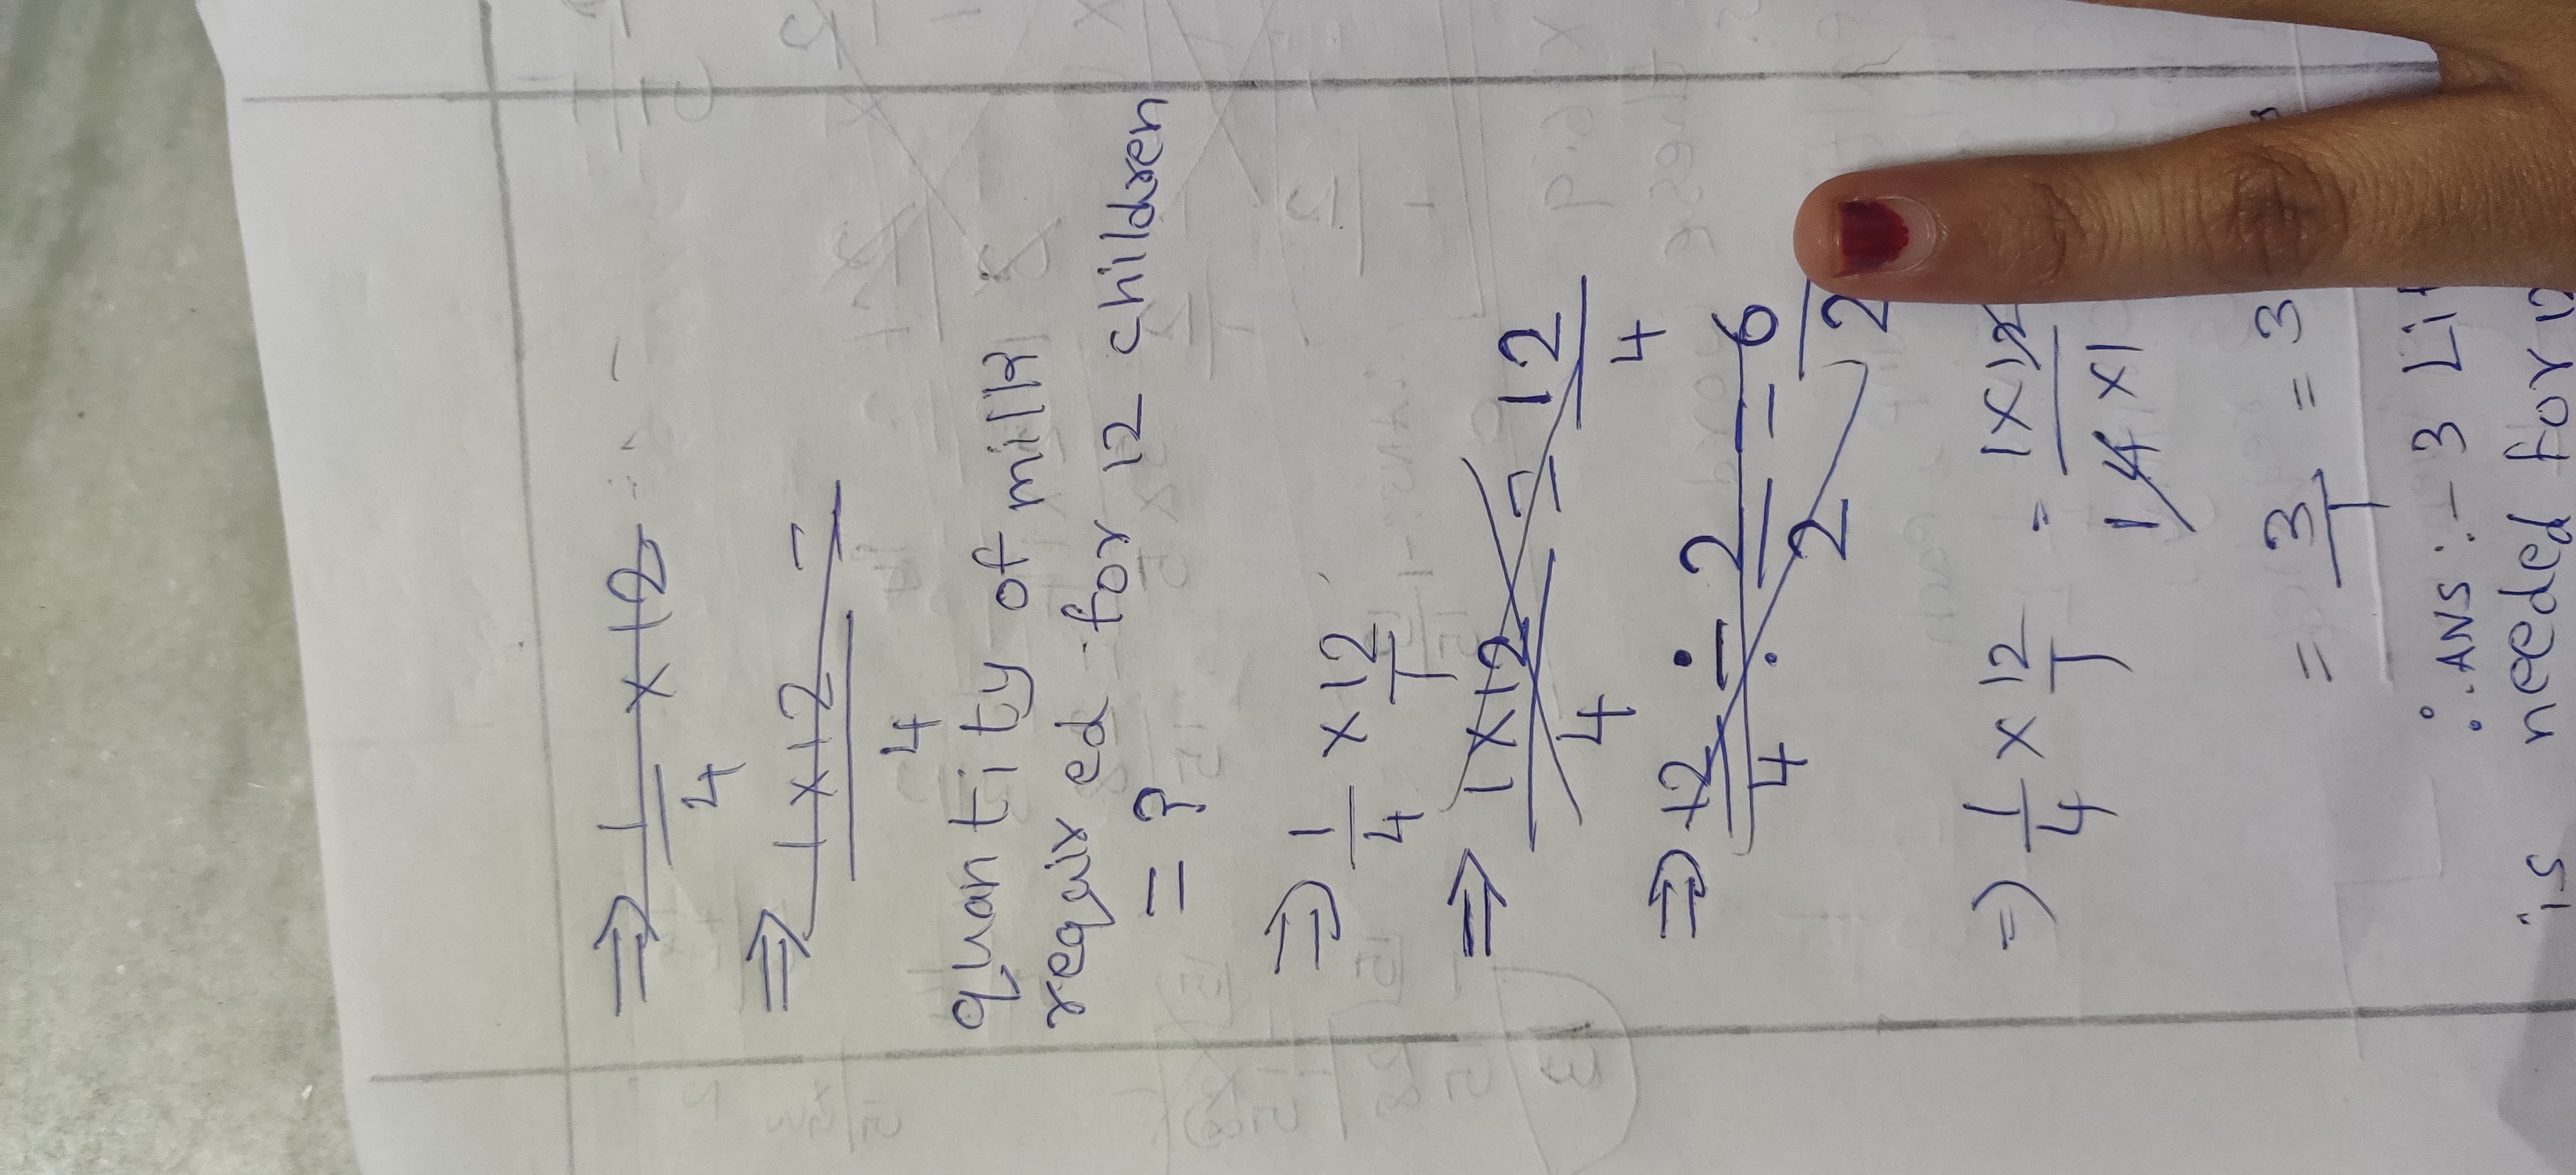 ⇒ 1/4 × 12
⇒ 1×12/4 =
quantity of milk
required for 12 children
= ?
⇒ 1/4 × 12/1
⇒ 1×12/4 = 12/4
⇒ 12/4 ÷ 2/2 = 6/2
⇒ 1/4 × 12/1 = 1×12/1 4×1
= 3/1 = 3
∴ ANS :- 3 Lit
is needed for 12